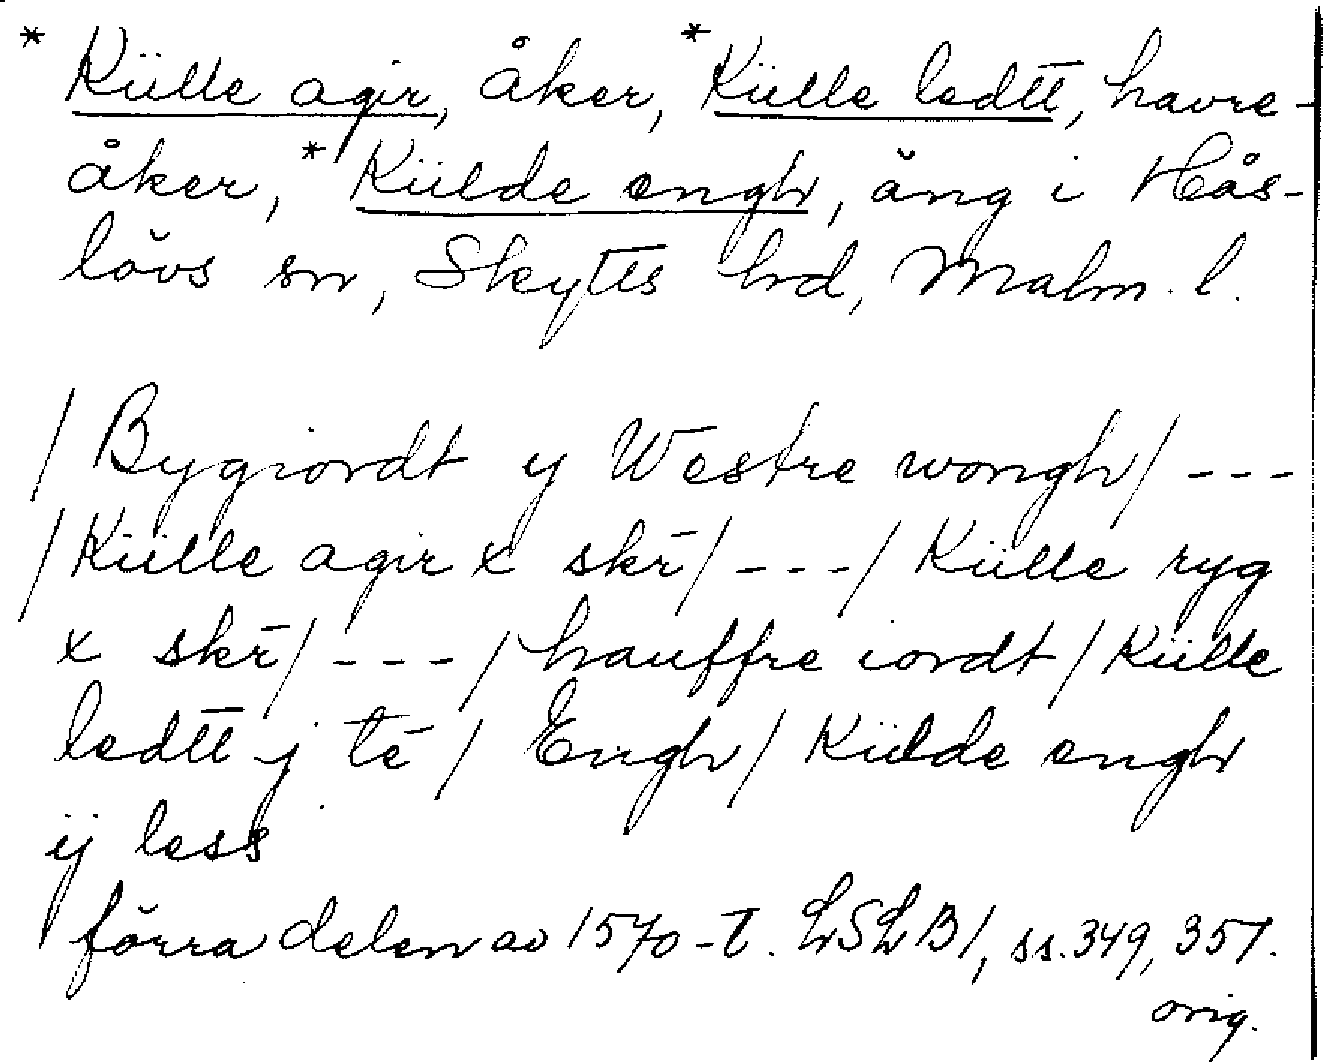 * Külle agir, åker, * Külle ledtt, havre-
åker, * Külde engh, äng i Hås-
lövs sn, Skytts hd, Malm. l.
/ Bygiordt y Westre wongh/ ---
/ Külle agir x skr̄/ ---/ Külle ryg
x skr̄/ ---/ hauffre iordt / Külle
ledtt j tē / Engh / Külde engh
ij less
förra delen av 1570-t. LSLB1, ss. 349, 357.
orig.